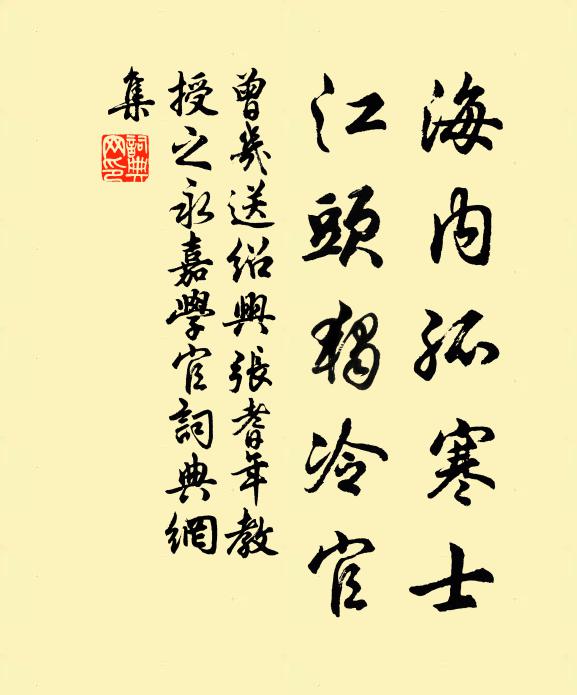 海内孤寒士
江頭獨冷官
曾幾送紹興張耆年教
授之永嘉學官詞典網
集
詞典
网印